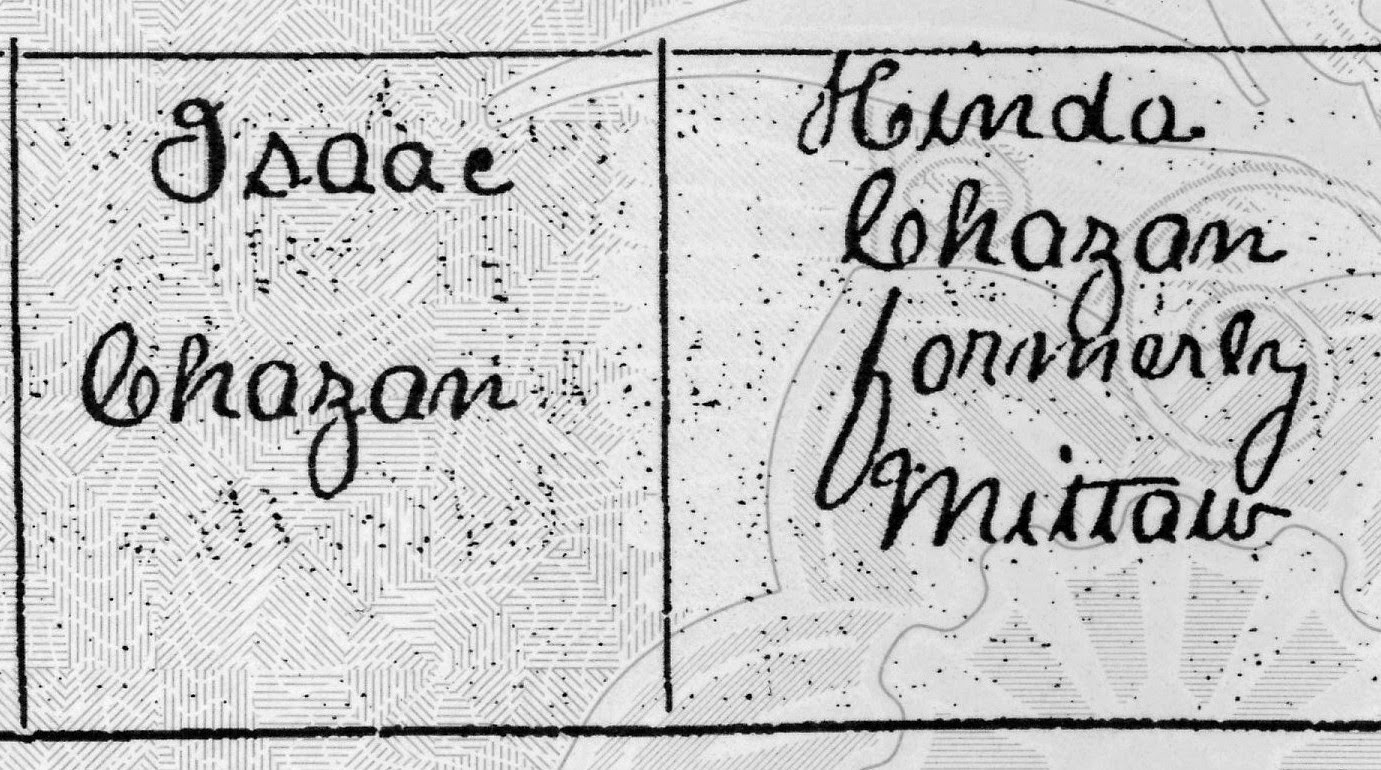 Isaac
Chazan
Hinda
Chazan
formerly
Mittaw